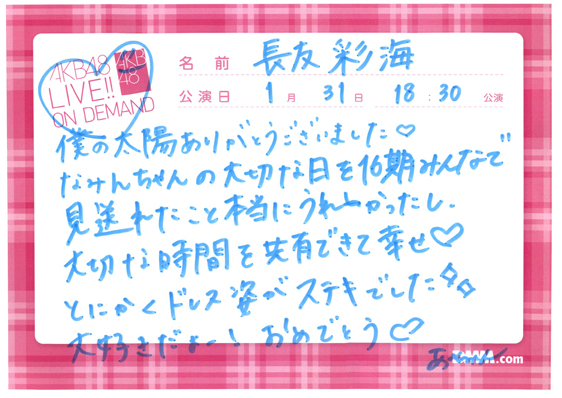 AKB48
LIVE!!
ON DEMAND
AKB
48
名前 長友彩海
公演日 1月 31日 18:30 公演
僕の太陽ありがとうございました♡
なみんちゃんの大切な日を16期みんなで
見送れたこと本当にうれしかったし、
大切な時間を共有できて幸せ♡
とにかくドレス姿がステキでした
大好きだよー！おめでとう♡
.com